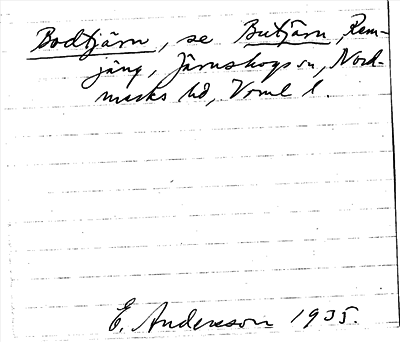 Bodtjärn, se Butjärn, Rem-
jäng, Järnskogs sn, Nord-
marks hd, Värml l.
E. Andersson 1935.